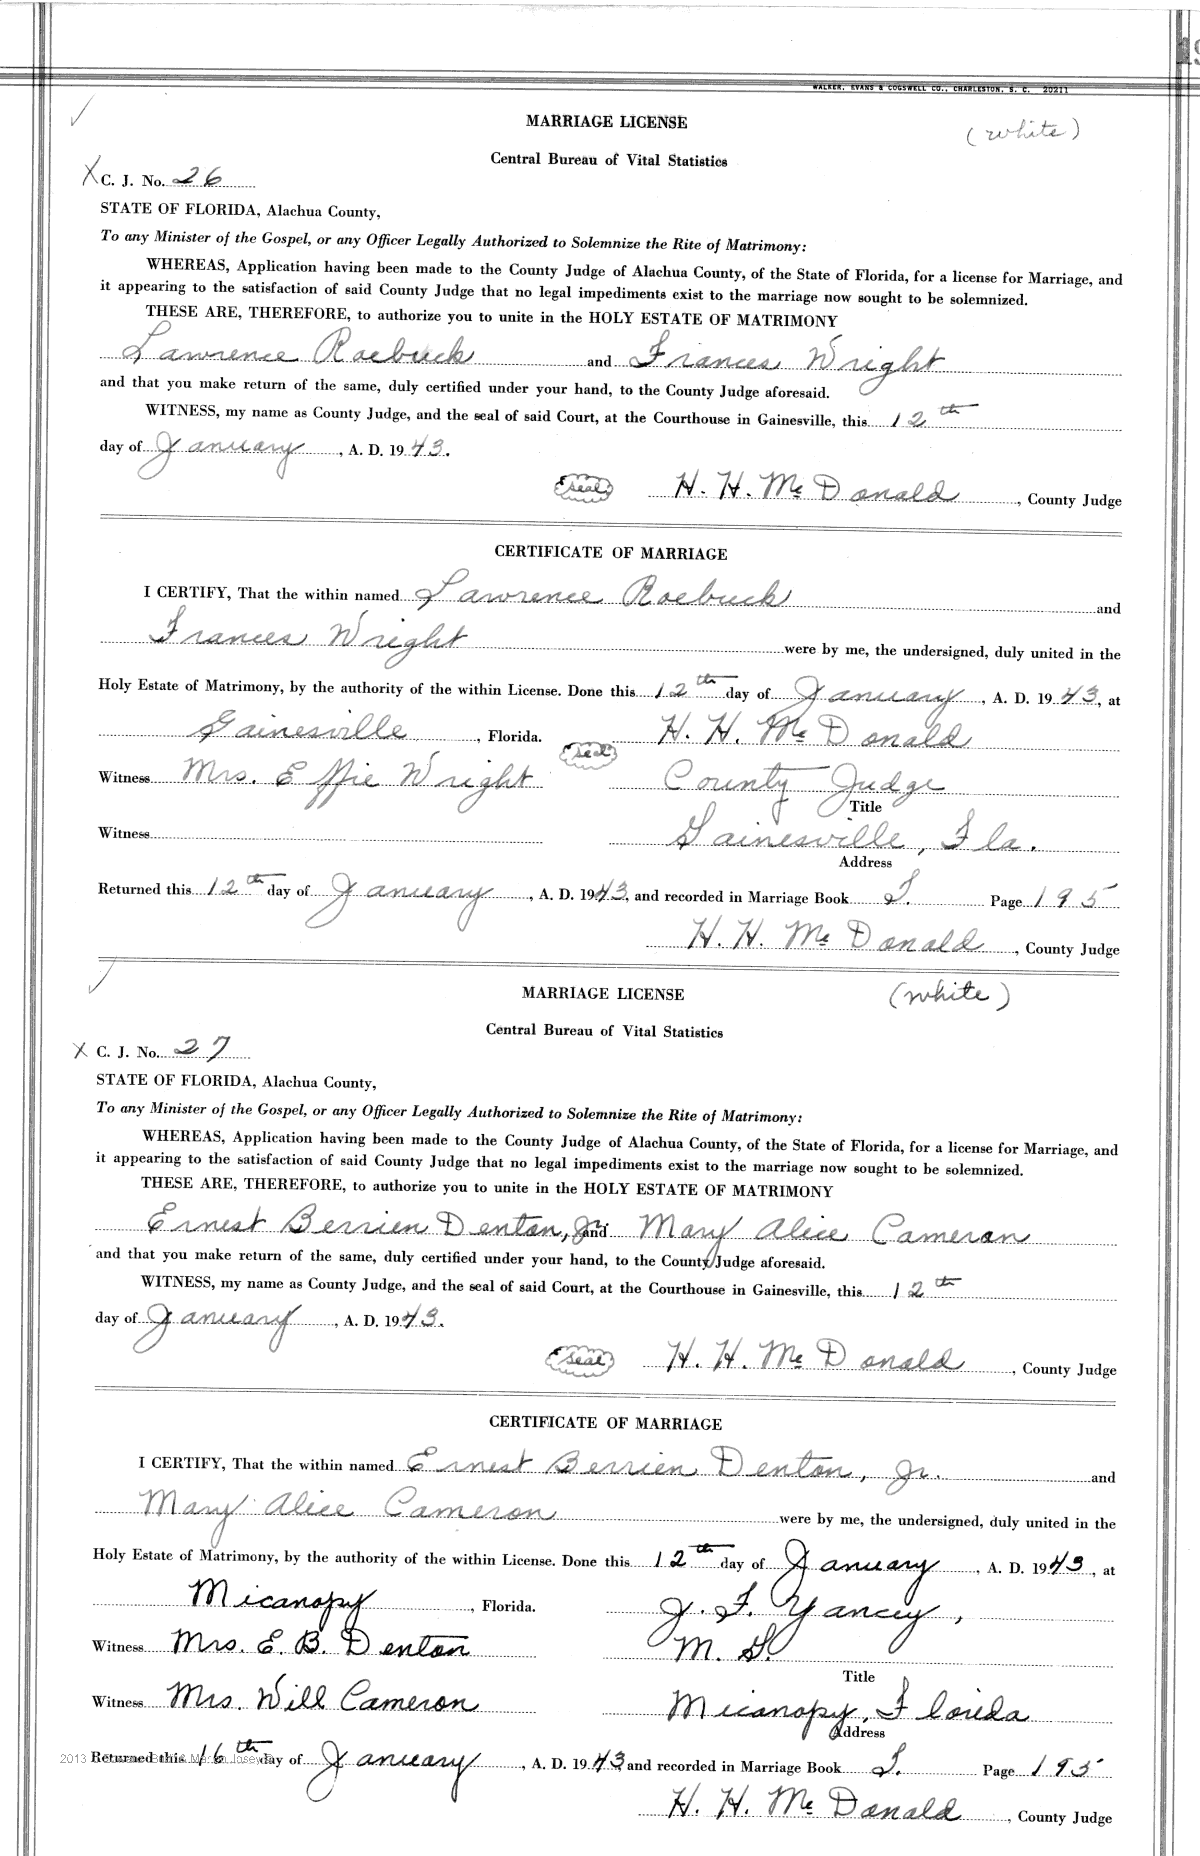 19
WALKER, EVANS & COGSWELL CO., CHARLESTON, S. C. 20211
MARRIAGE LICENSE
(white)
Central Bureau of Vital Statistics
X C. J. No. 26
STATE OF FLORIDA, Alachua County,
To any Minister of the Gospel, or any Officer Legally Authorized to Solemnize the Rite of Matrimony:
WHEREAS, Application having been made to the County Judge of Alachua County, of the State of Florida, for a license for Marriage, and
it appearing to the satisfaction of said County Judge that no legal impediments exist to the marriage now sought to be solemnized.
THESE ARE, THEREFORE, to authorize you to unite in the HOLY ESTATE OF MATRIMONY
Lawrence Roebuck and Frances Wright
and that you make return of the same, duly certified under your hand, to the County Judge aforesaid.
WITNESS, my name as County Judge, and the seal of said Court, at the Courthouse in Gainesville, this 12th
day of January, A. D. 1943.
seal H. H. McDonald, County Judge
CERTIFICATE OF MARRIAGE
I CERTIFY, That the within named Lawrence Roebuck and
Frances Wright were by me, the undersigned, duly united in the
Holy Estate of Matrimony, by the authority of the within License. Done this 12th day of January, A. D. 1943, at
Gainesville, Florida. seal H. H. McDonald
Witness Mrs. Effie Wright County Judge
Title
Witness Gainesville, Fla.
Address
Returned this 12th day of January, A. D. 1943, and recorded in Marriage Book Page 195
H. H. McDonald, County Judge
MARRIAGE LICENSE
(white)
Central Bureau of Vital Statistics
X C. J. No. 27
STATE OF FLORIDA, Alachua County,
To any Minister of the Gospel, or any Officer Legally Authorized to Solemnize the Rite of Matrimony:
WHEREAS, Application having been made to the County Judge of Alachua County, of the State of Florida, for a license for Marriage, and
it appearing to the satisfaction of said County Judge that no legal impediments exist to the marriage now sought to be solemnized.
THESE ARE, THEREFORE, to authorize you to unite in the HOLY ESTATE OF MATRIMONY
Ernest Berrien Denton, Jr. and Mary Alice Cameron
and that you make return of the same, duly certified under your hand, to the County Judge aforesaid.
WITNESS, my name as County Judge, and the seal of said Court, at the Courthouse in Gainesville, this 12th
day of January, A. D. 1943.
seal H. H. McDonald, County Judge
CERTIFICATE OF MARRIAGE
I CERTIFY, That the within named Ernest Berrien Denton, Jr. and
Mary Alice Cameron were by me, the undersigned, duly united in the
Holy Estate of Matrimony, by the authority of the within License. Done this 12th day of January, A. D. 1943, at
Micanopy, Florida. J. F. Yancey,
Witness Mrs. E. B. Denton M. G.
Title
Witness Mrs. Will Cameron Micanopy, Florida
Address
Returned this 16th day of January, A. D. 1943 and recorded in Marriage Book Page 195
2013
H. H. McDonald, County Judge